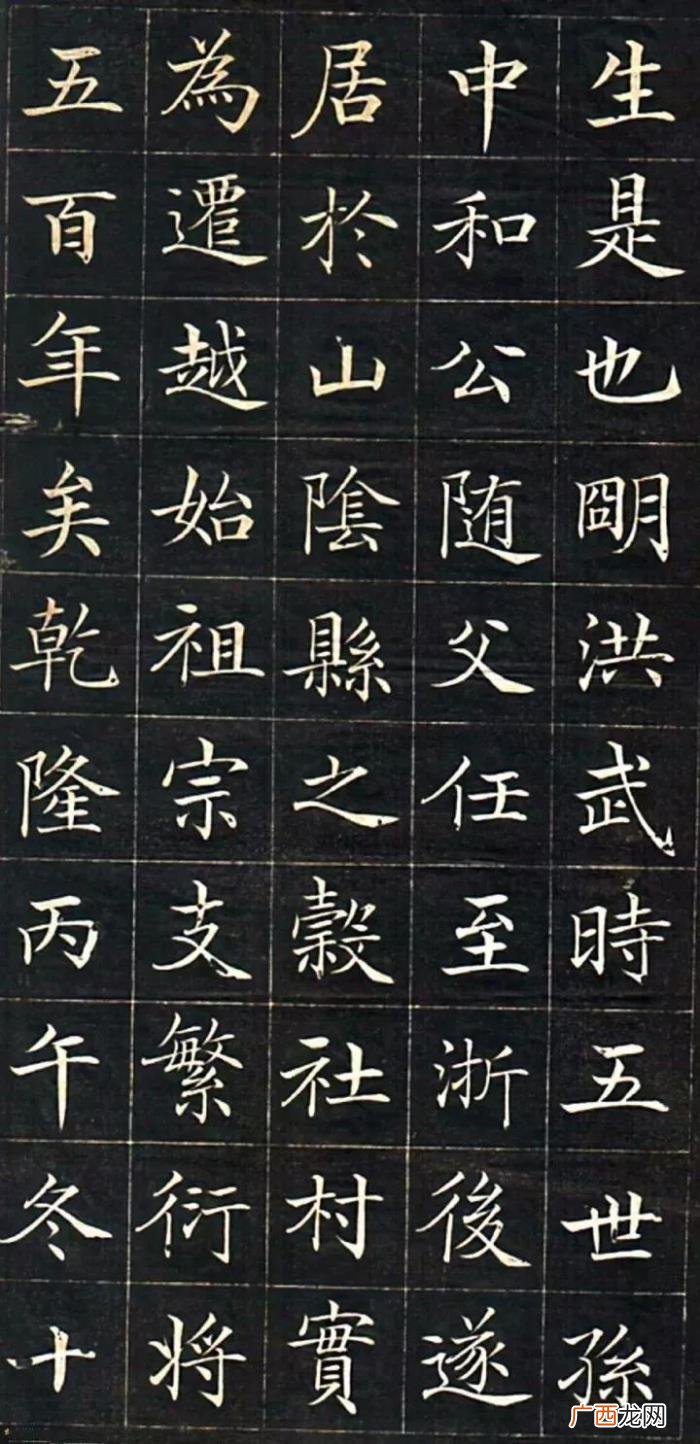 生是也朙洪武時五世孫
中和公随父任至浙後遂
居於山陰縣之穀社村實
為遷越始祖宗支繁衍将
五百年矣乾隆丙午冬十
广西龙网